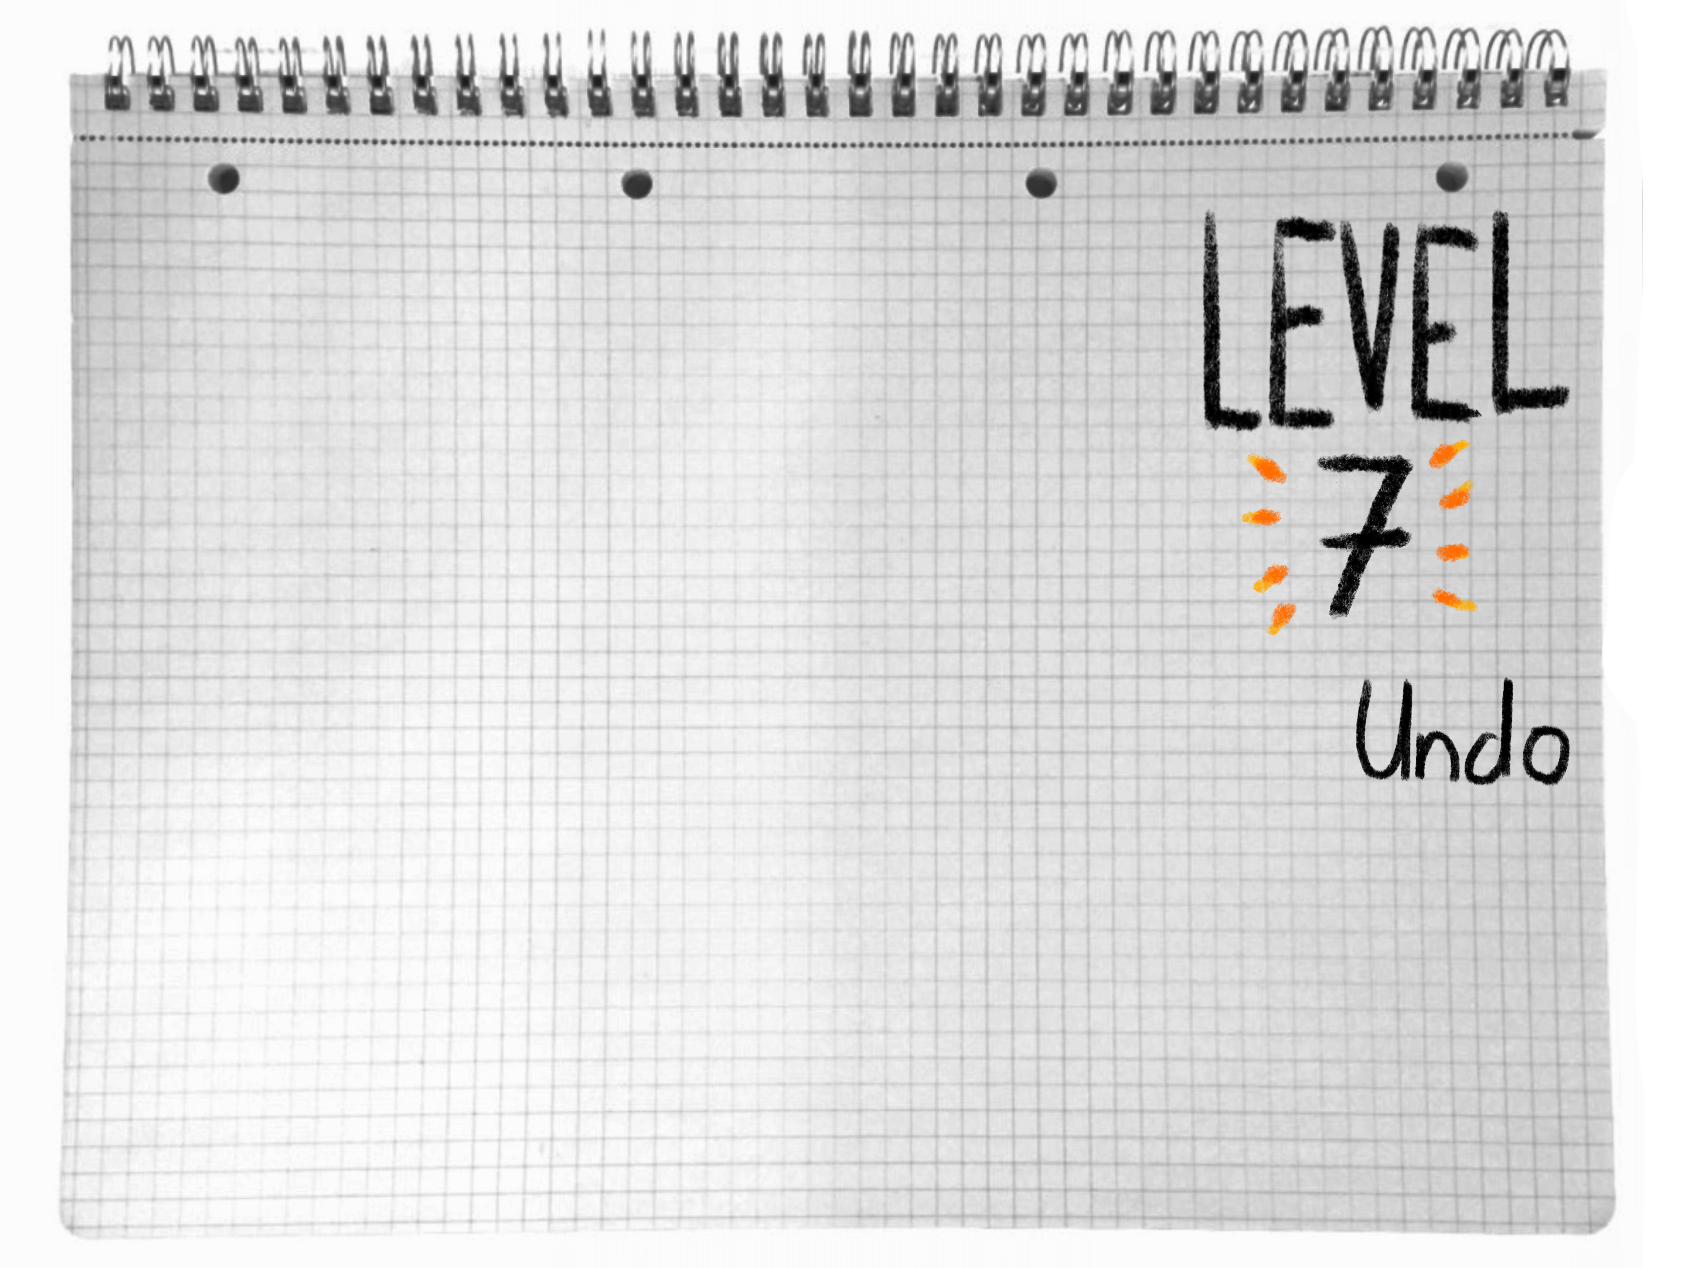 LEVEL
7
Undo